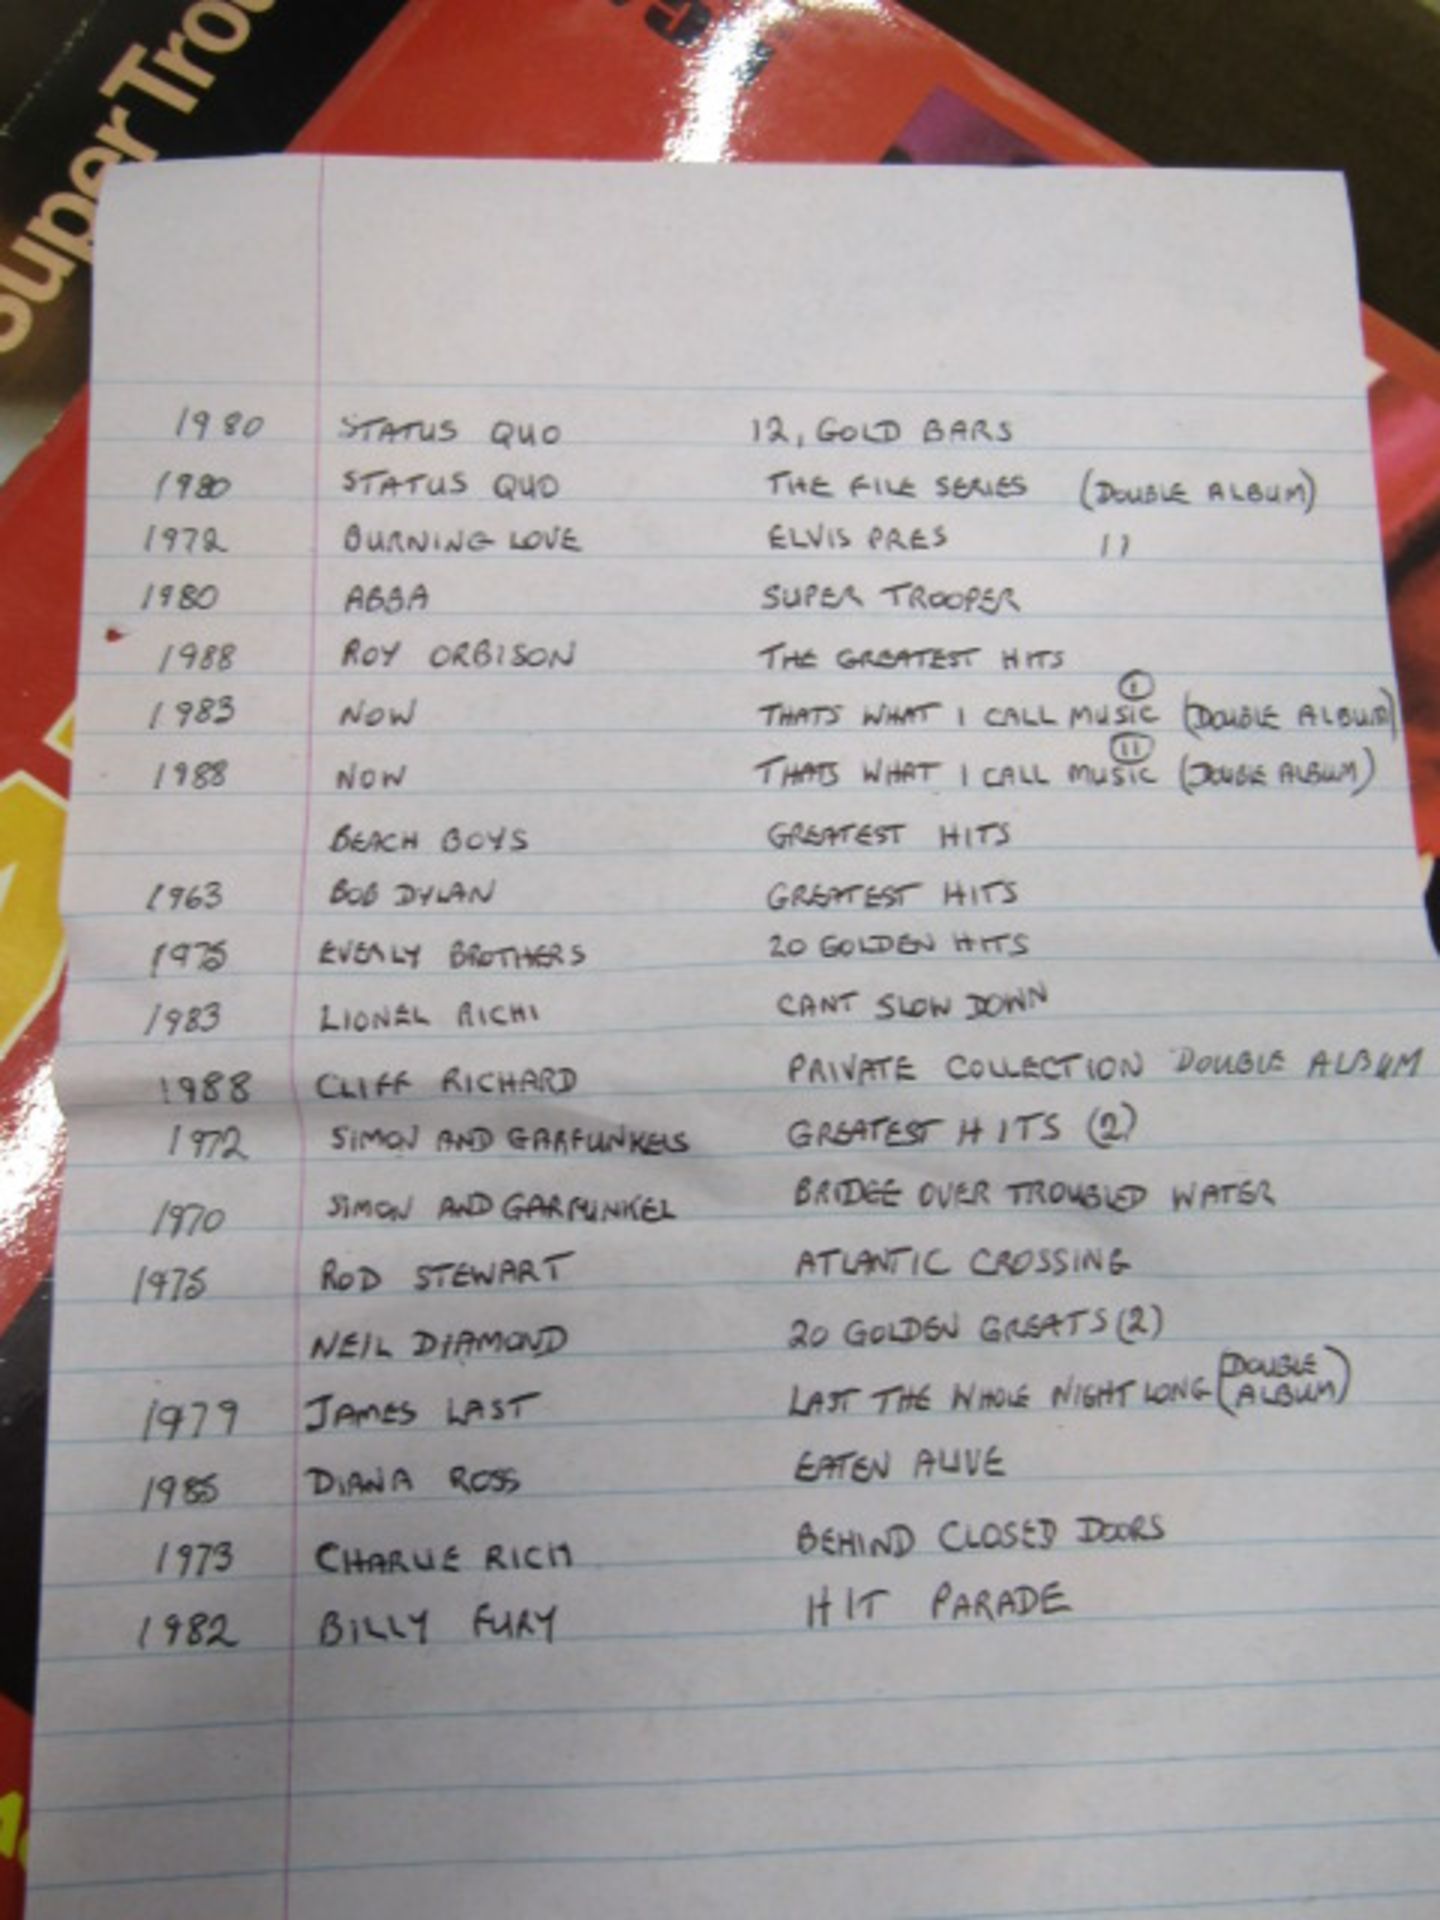 Super Trou
1980 STATUS QUO 12, GOLD BARS
1980 STATUS QUO THE FILE SERIES (DOUBLE ALBUM)
1972 BURNING LOVE ELVIS PRES 11
1980 ABBA SUPER TROOPER
1988 ROY ORBISON THE GREATEST HITS
1983 NOW THATS WHAT I CALL MUSIC (I) (DOUBLE ALBUM)
1988 NOW THATS WHAT I CALL MUSIC (II) (DOUBLE ALBUM)
BEACH BOYS GREATEST HITS
1963 BOB DYLAN GREATEST HITS
1975 EVERLY BROTHERS 20 GOLDEN HITS
1983 LIONEL RICHI CANT SLOW DOWN
1988 CLIFF RICHARD PRIVATE COLLECTION DOUBLE ALBUM
1972 SIMON AND GARFUNKELS GREATEST HITS (2)
1970 SIMON AND GARFUNKEL BRIDGE OVER TROUBLED WATER
1975 ROD STEWART ATLANTIC CROSSING
NEIL DIAMOND 20 GOLDEN GREATS (2)
1979 JAMES LAST LAST THE WHOLE NIGHT LONG (DOUBLE ALBUM)
1985 DIANA ROSS EATEN ALIVE
1973 CHARLIE RICH BEHIND CLOSED DOORS
1982 BILLY FURY HIT PARADE